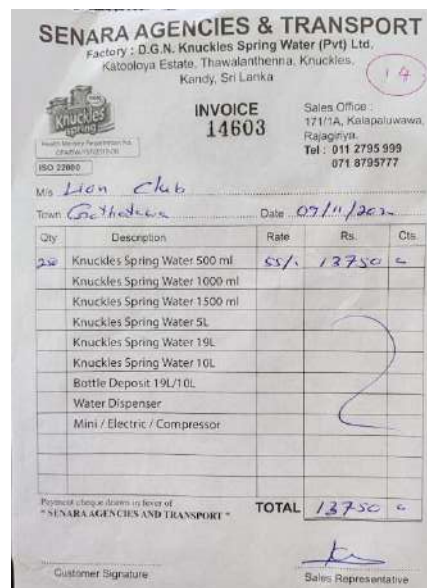 SENARA AGENCIES & TRANSPORT
Factory : D.G.N. Knuckles Spring Water (Pvt) Ltd.
Katooloya Estate, Thawalanthenna, Knuckles,
Kandy, Sri Lanka
14
Knuckles
spring
INVOICE
14603
Sales Office :
171/1A, Kalapaluwawa,
Rajagiriya.
Tel : 011 2795 999
071 8795777
ISO 22000
M/s Lion Club
Town
Date 09/11/202
Qty Description Rate Rs. Cts.
250 Knuckles Spring Water 500 ml 55/- 13750
Knuckles Spring Water 1000 ml
Knuckles Spring Water 1500 ml
Knuckles Spring Water 5L
Knuckles Spring Water 19L
Knuckles Spring Water 10L
Bottle Deposit 19L/10L
Water Dispenser
Mini / Electric / Compressor
Payment cheque drawn in favor of
"SENARA AGENCIES AND TRANSPORT"
TOTAL 13750
Customer Signature
Sales Representative